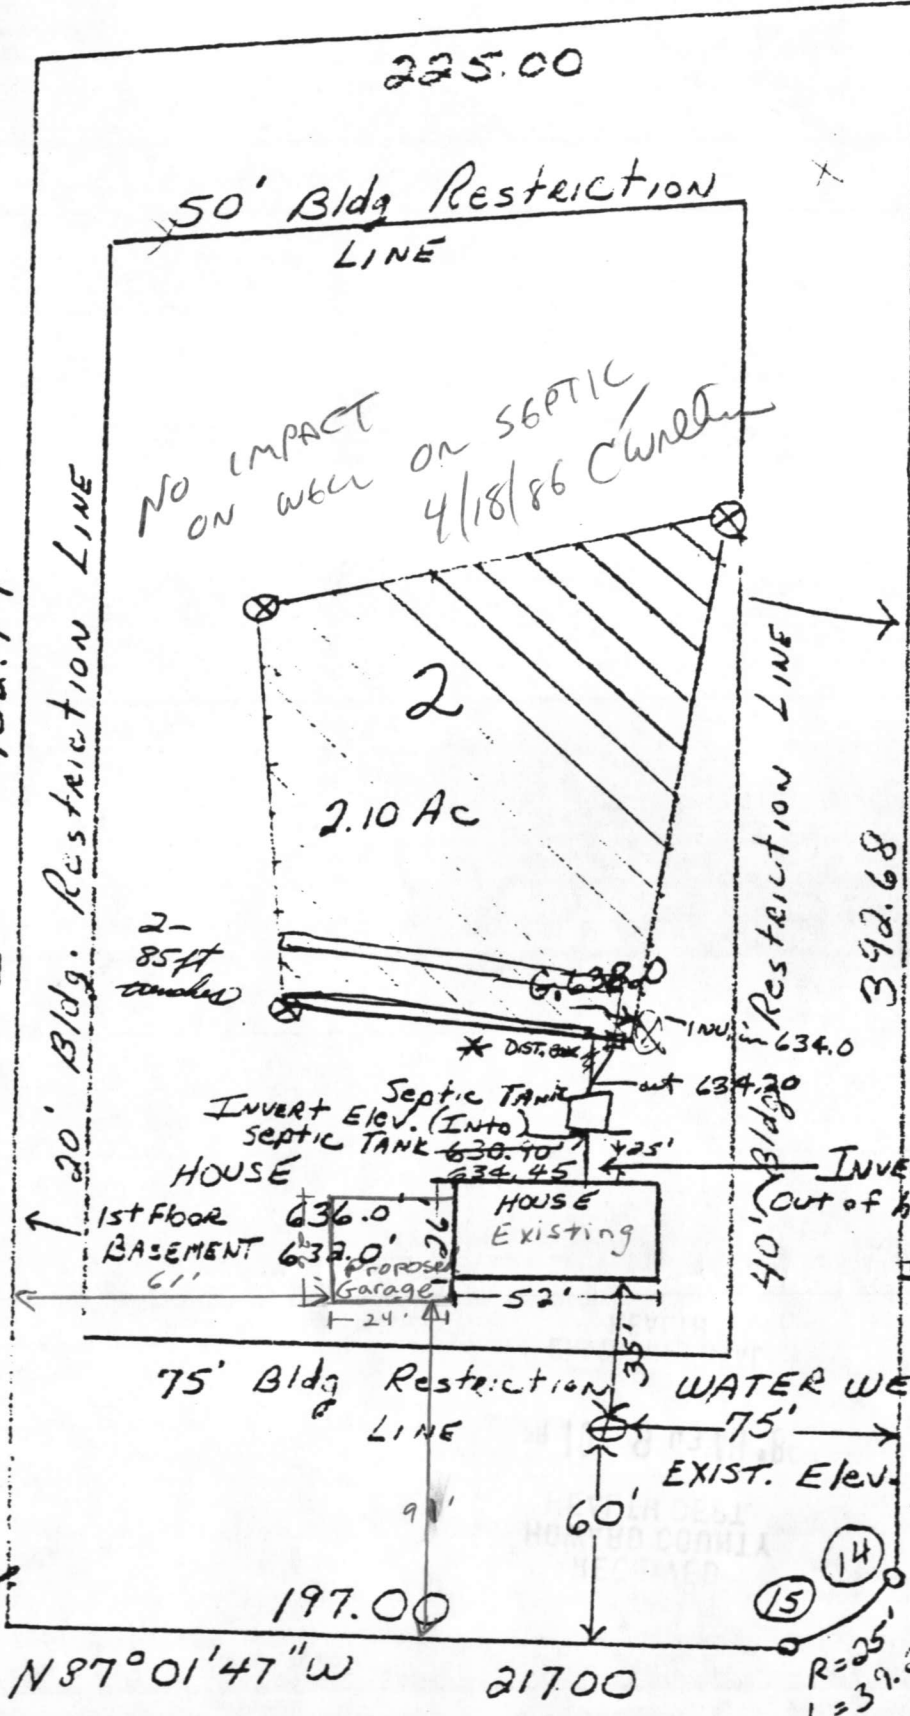 225.00
50' Bldg Restriction
LINE
NO IMPACT
ON WELL OR SEPTIC
4/18/86
20' Bldg. Restriction LINE
2
2.10 Ac
40' Bldg Restriction LINE
392.68
2-
85ft
trenches
INV. in 634.0
* DIST. BOX
out 634.20
Septic TANK
INVERT Elev. (Into)
Septic TANK 630.40
634.45
25'
INVE
(Out of h
HOUSE
1st Floor 636.0'
BASEMENT 632.0'
26'
HOUSE
Existing
Proposed
Garage
61'
24'
52'
35'
75' Bldg Restriction
LINE
WATER WE
75'
EXIST. Elev.
60'
14
15
197.00
N87°01'47"W
217.00
R=25'